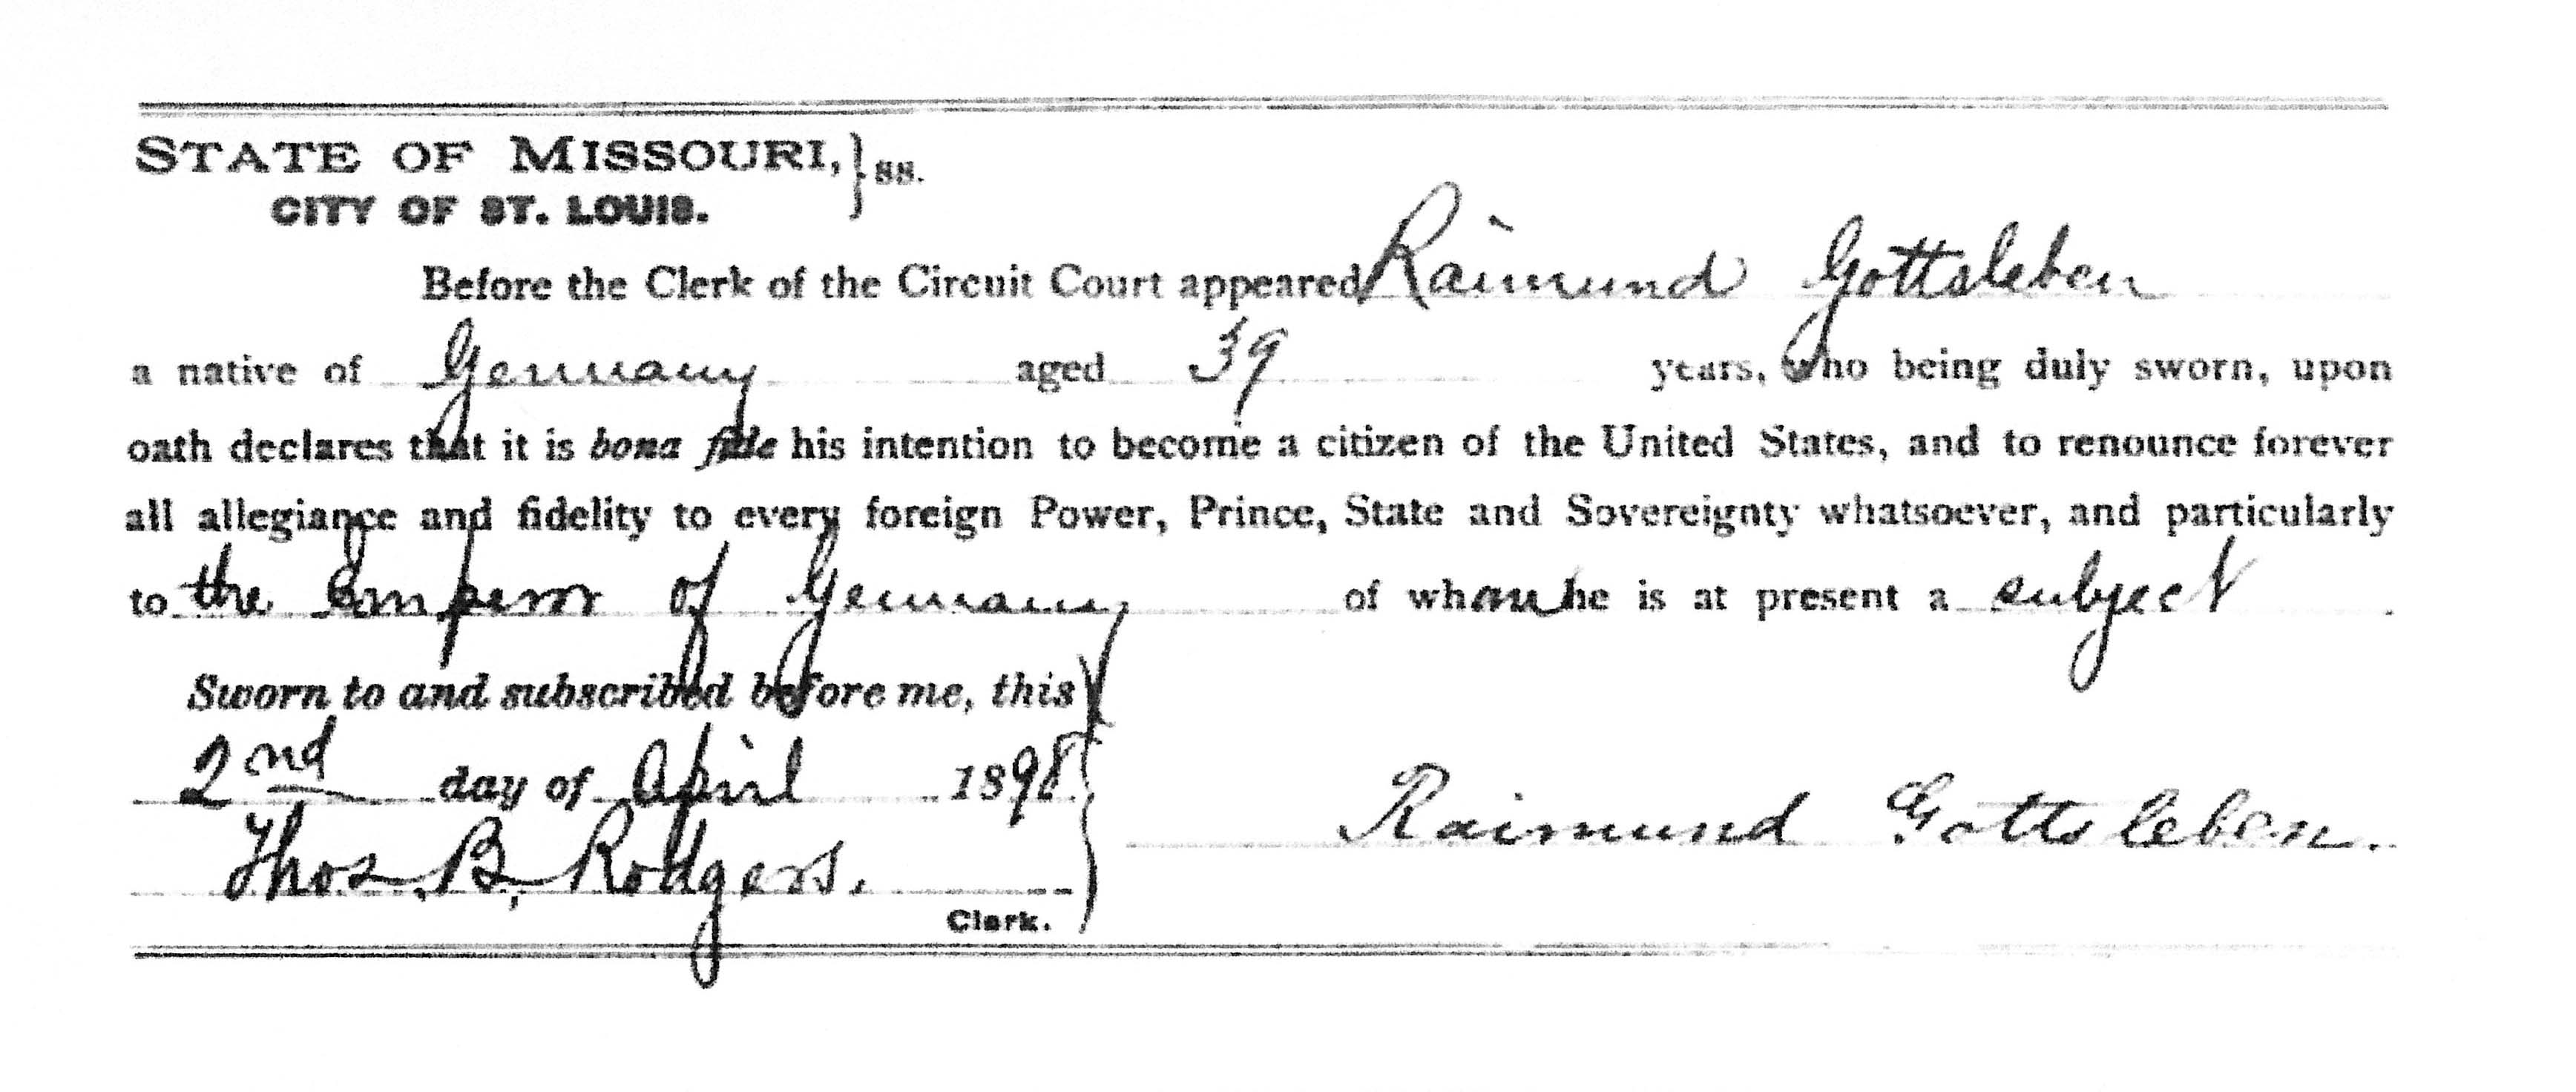 STATE OF MISSOURI, } ss.
CITY OF ST. LOUIS.
Before the Clerk of the Circuit Court appeared Raimund Gottsleben
a native of Germany aged 39 years, who being duly sworn, upon
oath declares that it is bona fide his intention to become a citizen of the United States, and to renounce forever
all allegiance and fidelity to every foreign Power, Prince, State and Sovereignty whatsoever, and particularly
to the Emperor of Germany of whom he is at present a subject.
Sworn to and subscribed before me, this
2nd day of April 1898
Raimund Gottsleben.
Thos. B. Rodgers.
Clerk.